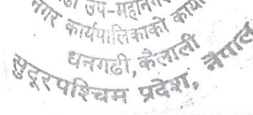 उप-महानगर
नगर कार्यपालिकाको कार्या
धनगढी, कैलाली
सुदूरपश्चिम प्रदेश, नेपाल